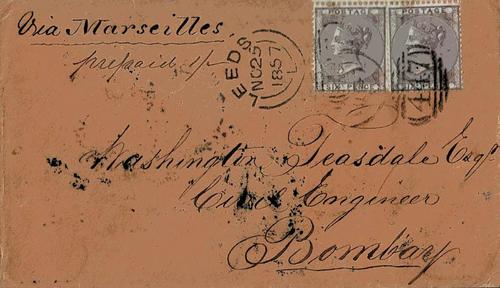 Via Marseilles,
prepaid 1/-
LEEDS
NO 25
1857
L
POSTAGE POSTAGE
SIX PENCE SIX PENCE
447
Washington Teasdale Esqr
Civil Engineer
Bombay